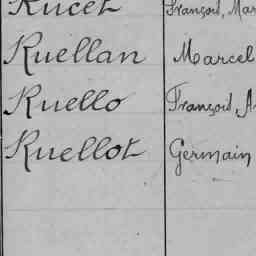 Rucet François, Mar
Ruellan Marcel
Ruello François, A
Ruellot Germain